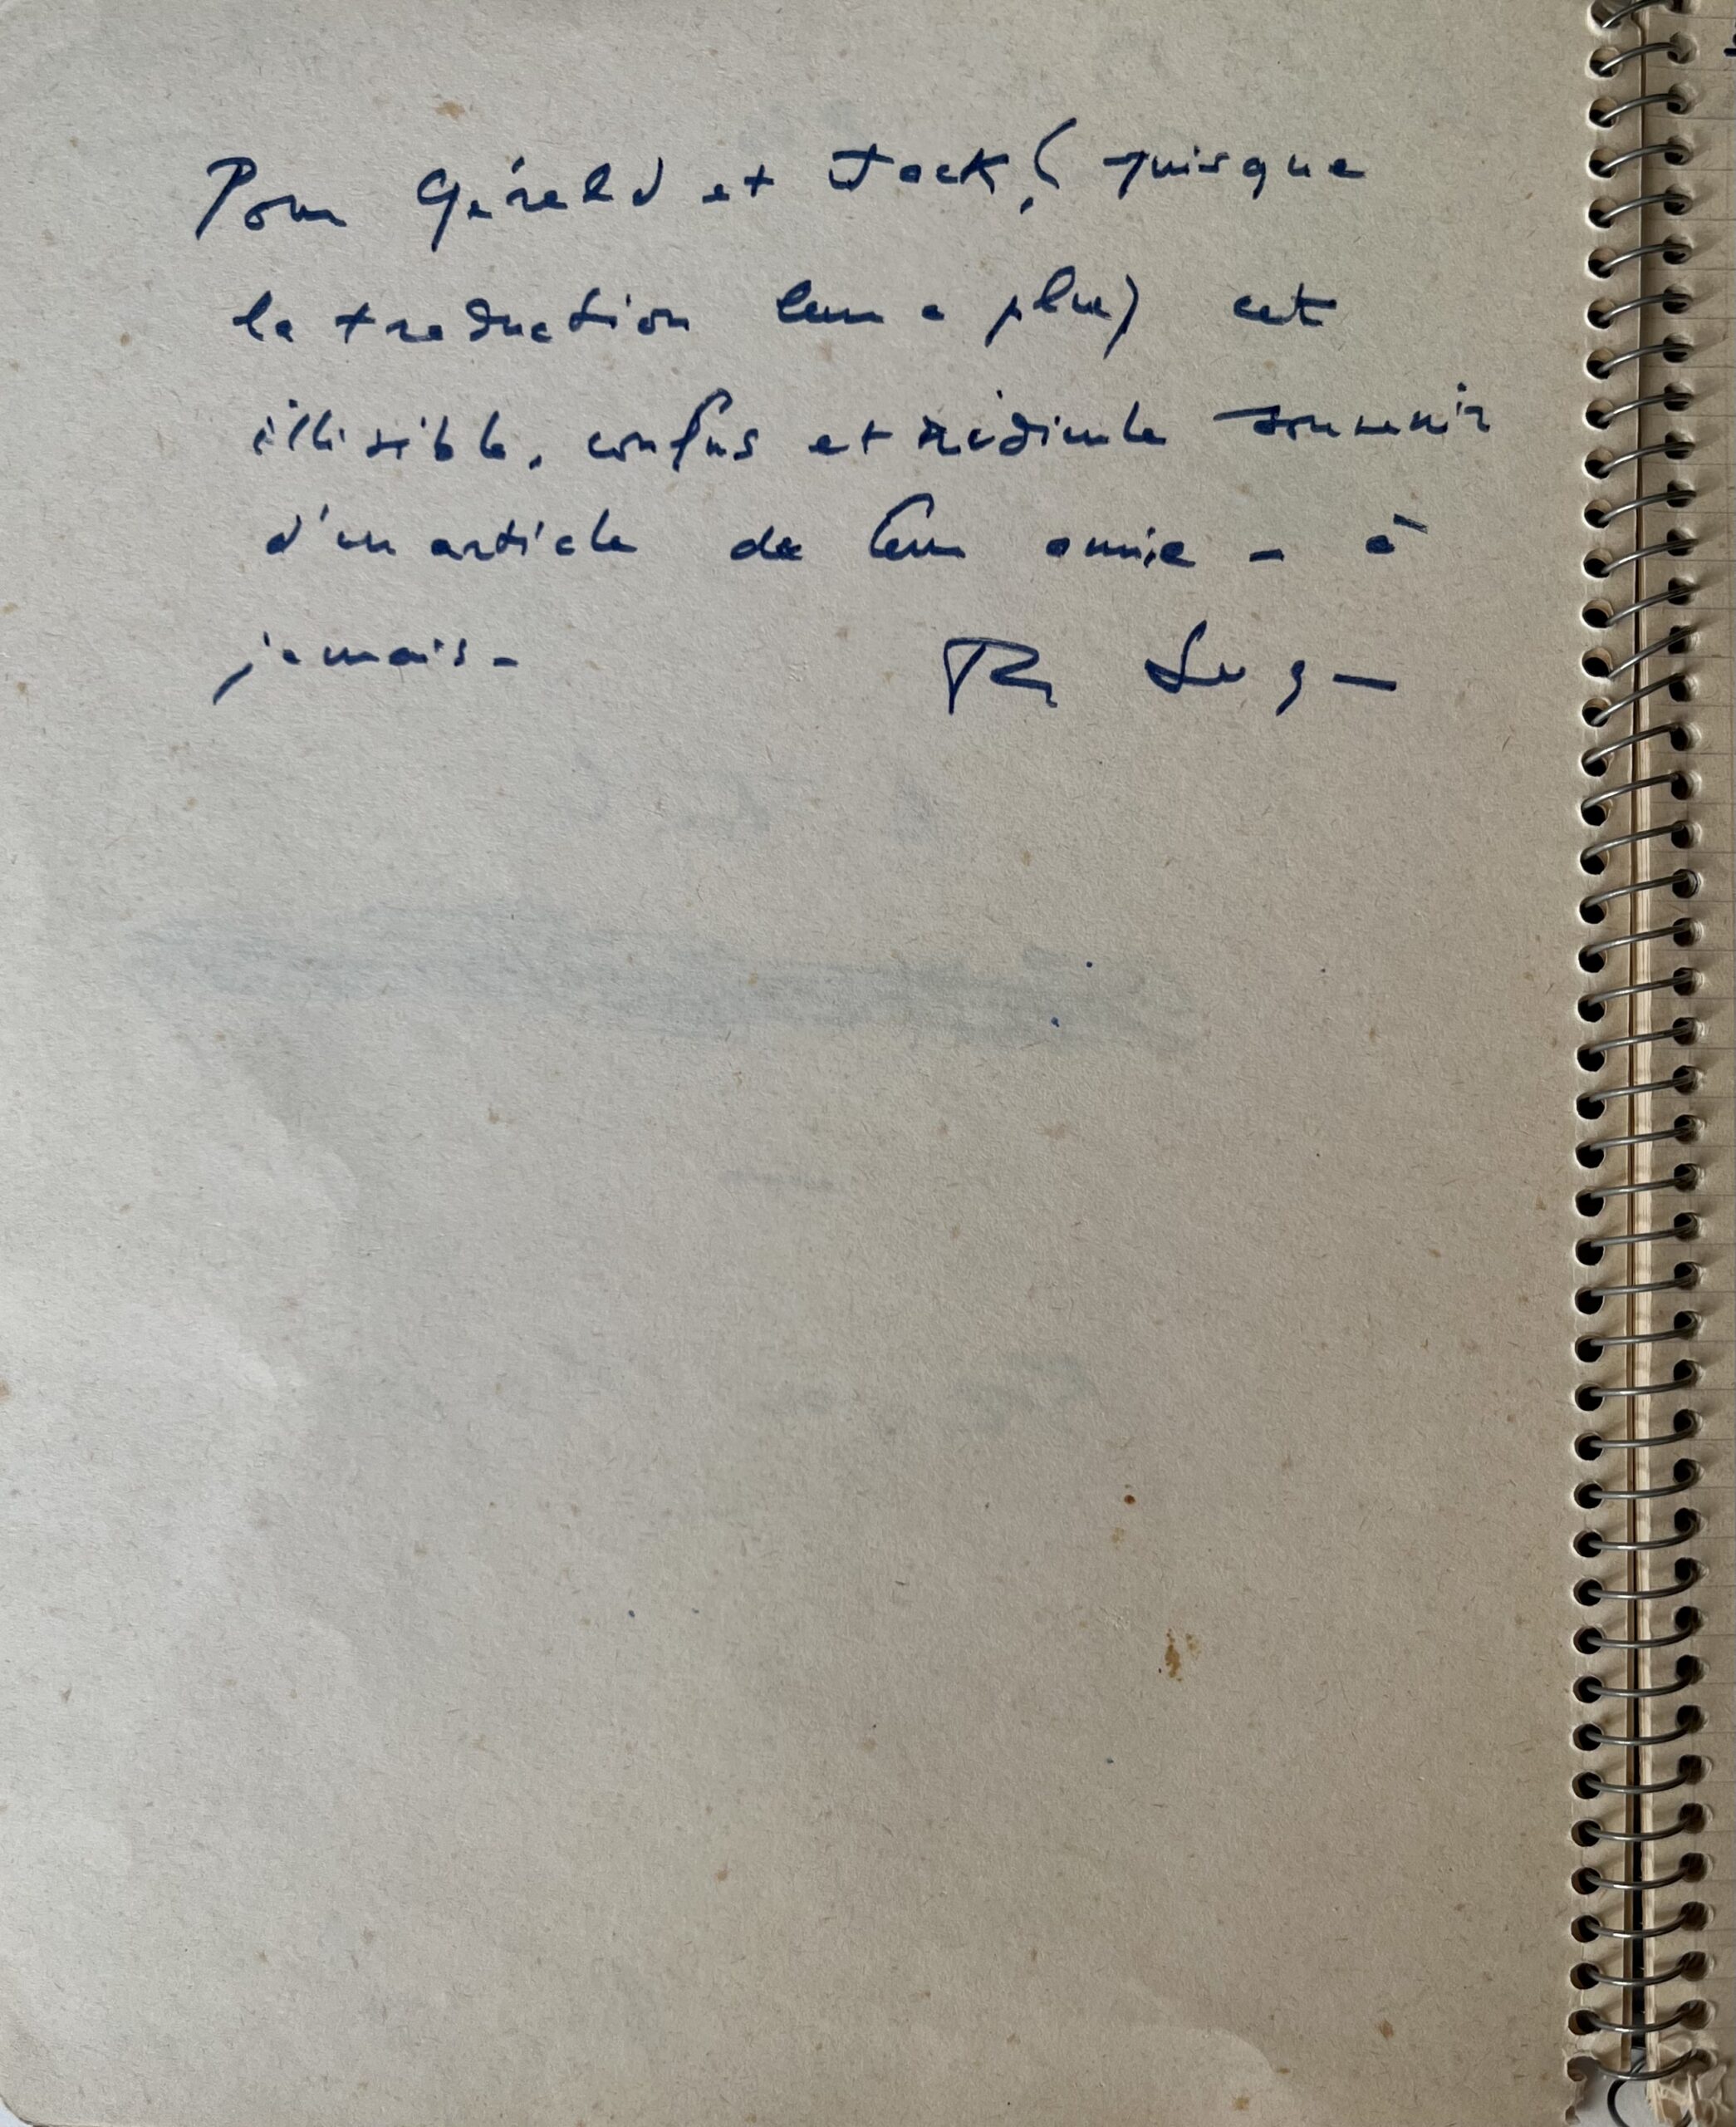 Pour Gérald et Jack, (puisque
la traduction leur a plu) cet
illisible, confus et ridicule souvenir
d'un article de leur amie – à
jamais –